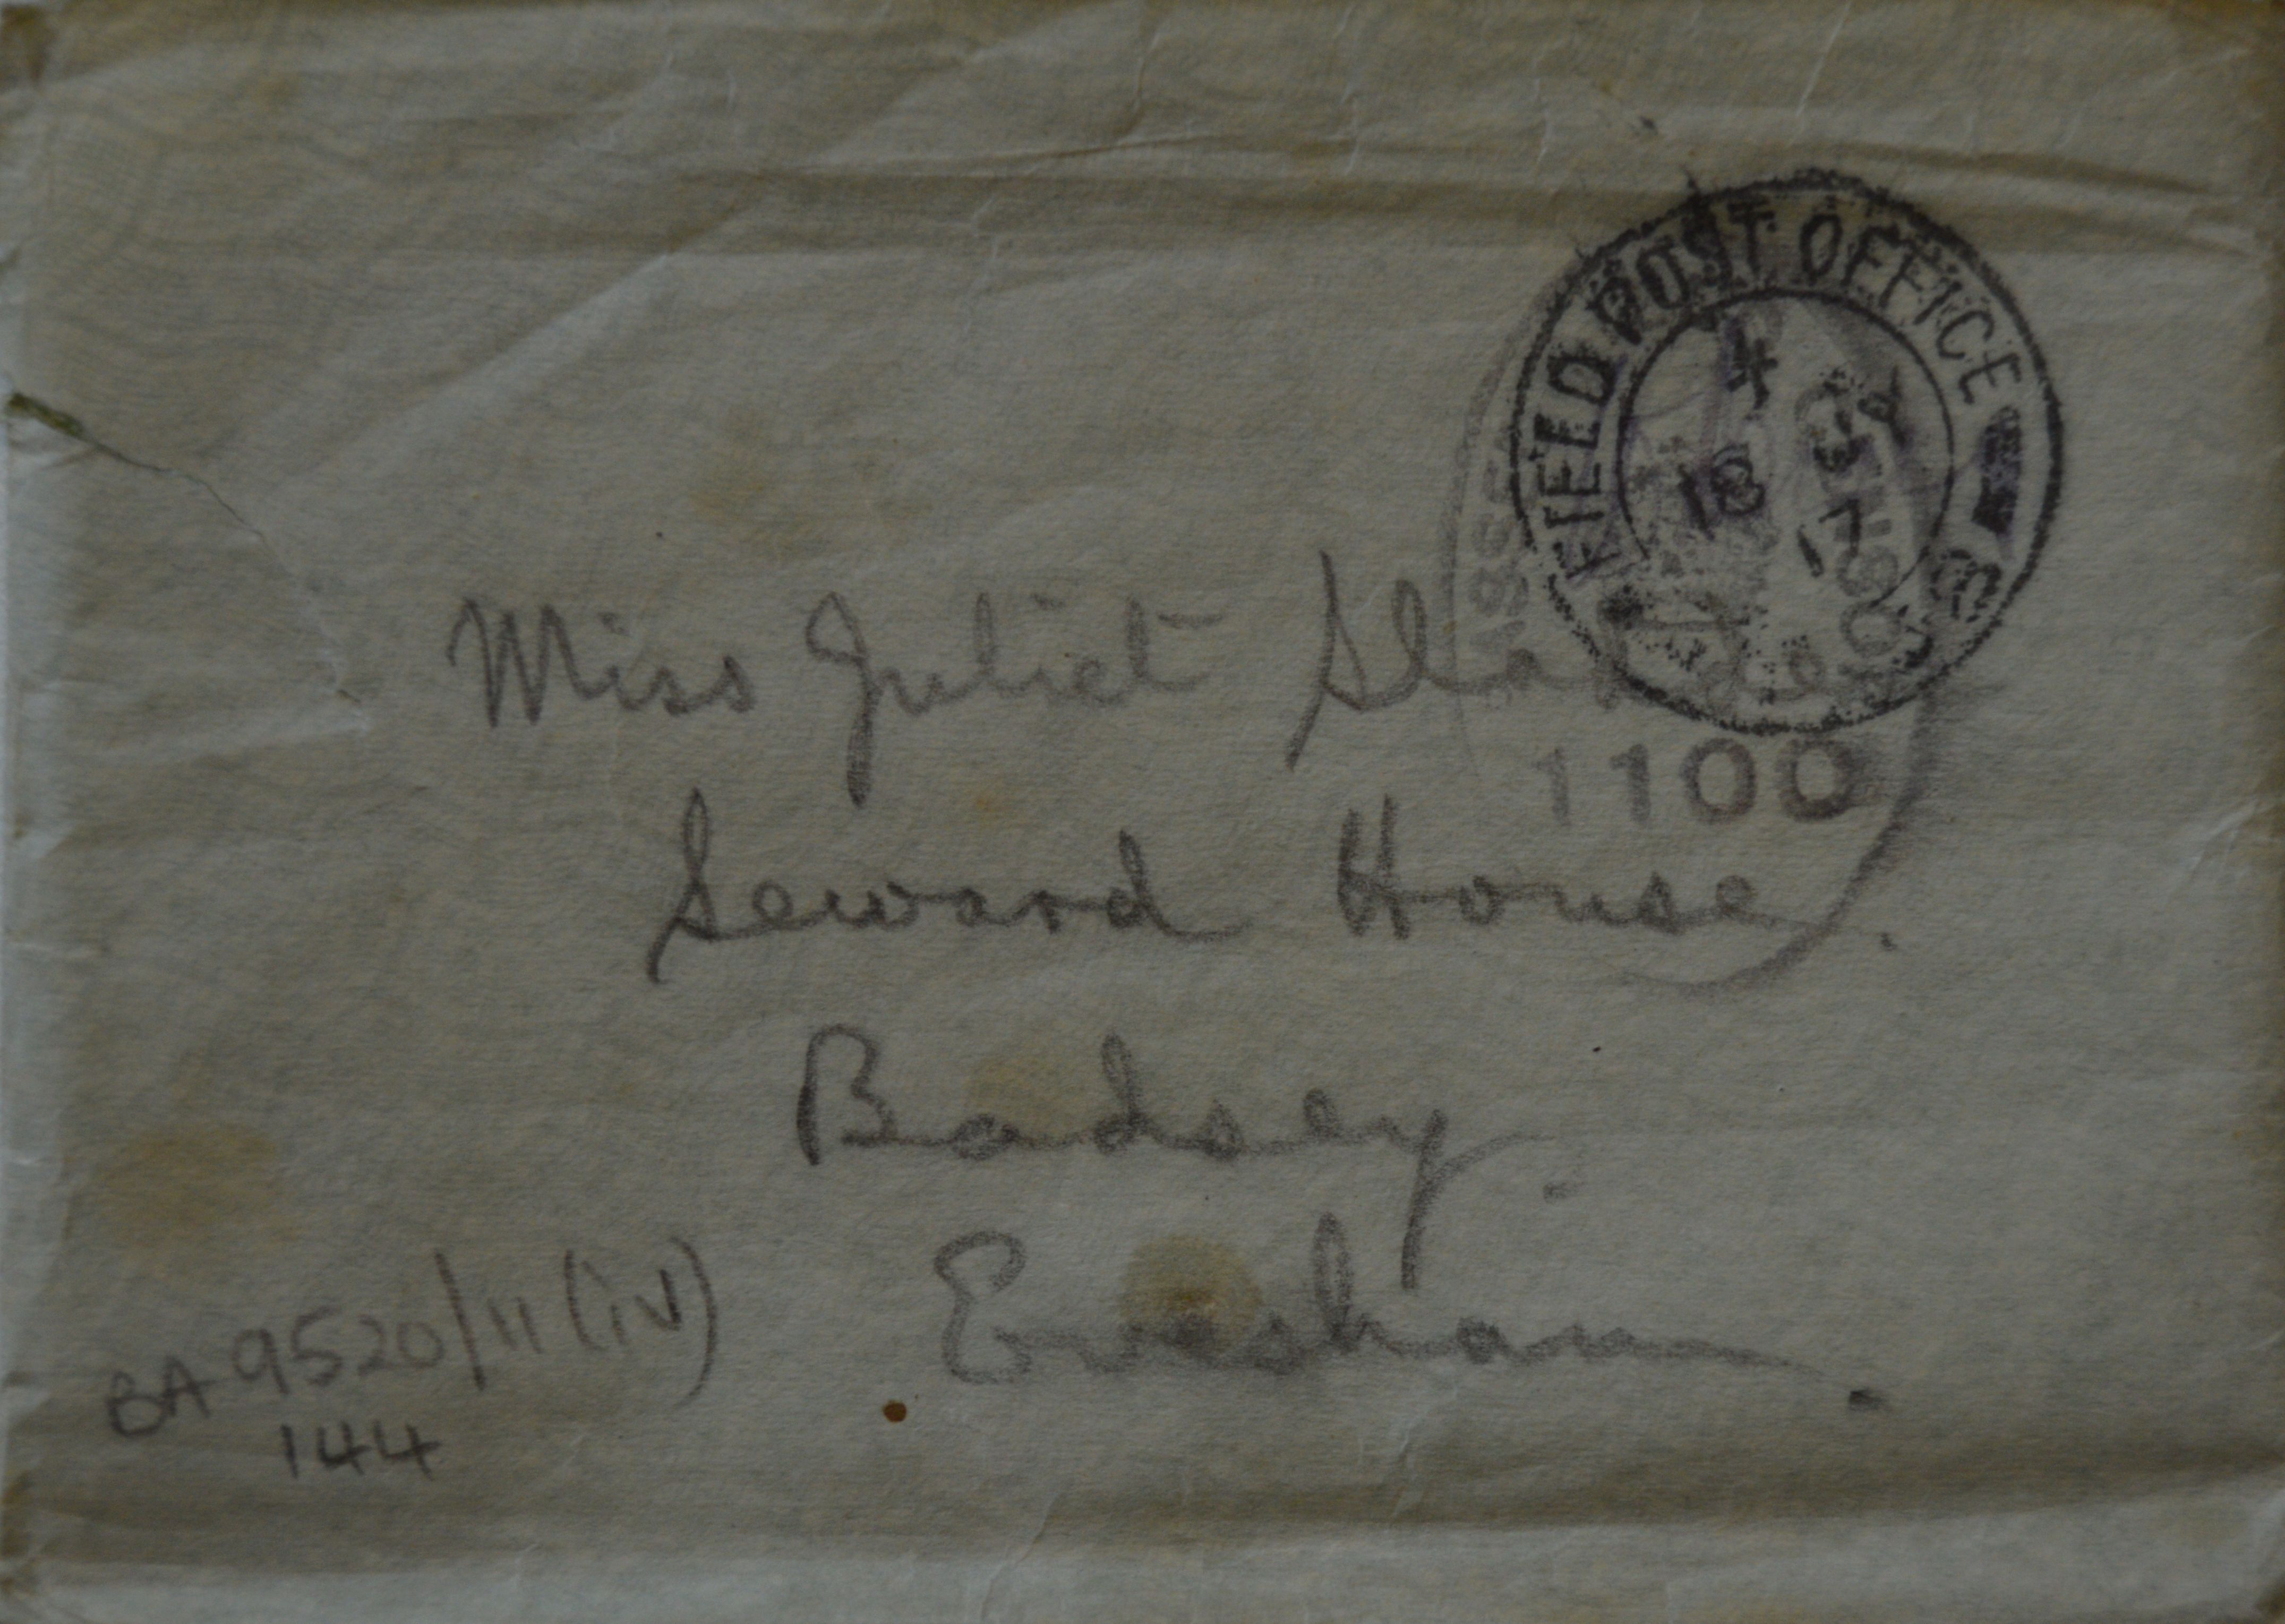 FIELD POST OFFICE
4
18 17
1100
Miss Juliet
Seward House.
Badsey.
Evesham.
BA 9520/11(iv)
144